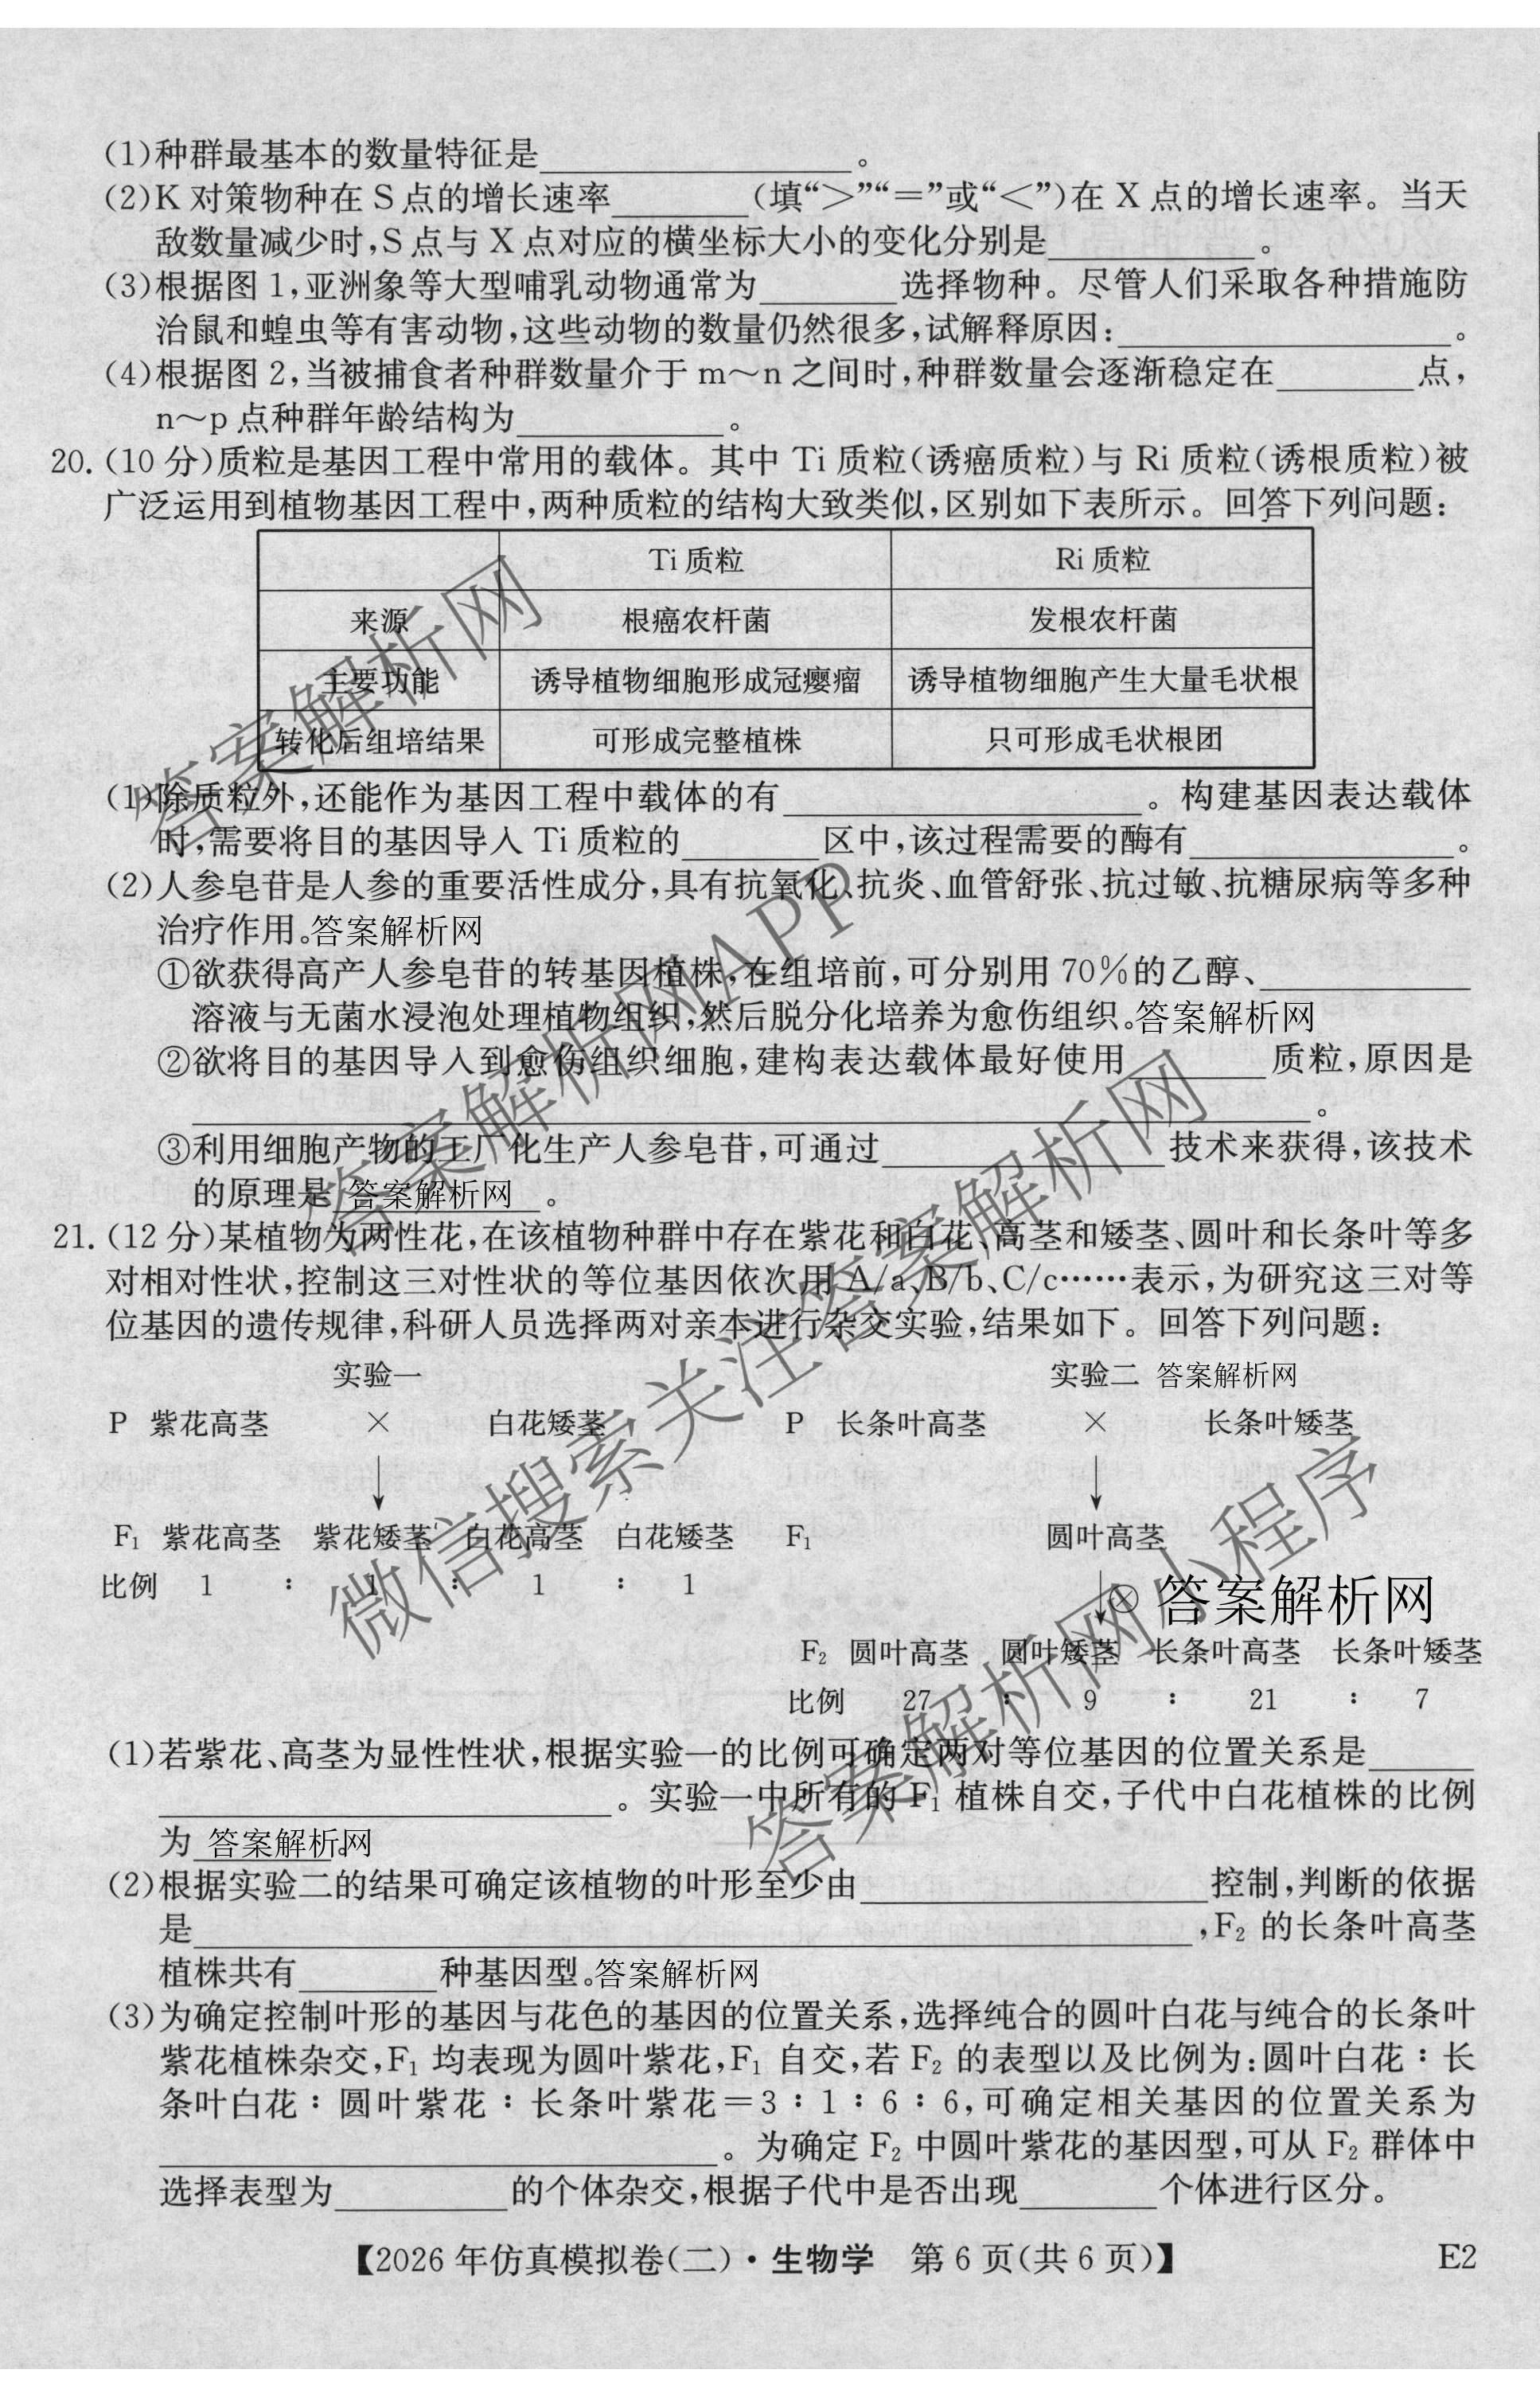 (1)种群最基本的数量特征是____________。
(2)K对策物种在S点的增长速率______(填“>”“=”或“<”)在X点的增长速率。当天
敌数量减少时,S点与X点对应的横坐标大小的变化分别是________。
(3)根据图1,亚洲象等大型哺乳动物通常为______选择物种。尽管人们采取各种措施防
治鼠和蝗虫等有害动物,这些动物的数量仍然很多,试解释原因:____________。
(4)根据图2,当被捕食者种群数量介于m~n之间时,种群数量会逐渐稳定在______点,
n~p点种群年龄结构为________。
20.(10分)质粒是基因工程中常用的载体。其中Ti质粒(诱癌质粒)与Ri质粒(诱根质粒)被
广泛运用到植物基因工程中,两种质粒的结构大致类似,区别如下表所示。回答下列问题:
Ti质粒 Ri质粒
来源 根癌农杆菌 发根农杆菌
主要功能 诱导植物细胞形成冠瘿瘤 诱导植物细胞产生大量毛状根
转化后组培结果 可形成完整植株 只可形成毛状根团
(1)除质粒外,还能作为基因工程中载体的有____________。构建基因表达载体
时,需要将目的基因导入Ti质粒的______区中,该过程需要的酶有__________。
(2)人参皂苷是人参的重要活性成分,具有抗氧化、抗炎、血管舒张、抗过敏、抗糖尿病等多种
治疗作用。答案解析网
①欲获得高产人参皂苷的转基因植株,在组培前,可分别用70%的乙醇、________
溶液与无菌水浸泡处理植物组织,然后脱分化培养为愈伤组织。答案解析网
②欲将目的基因导入到愈伤组织细胞,建构表达载体最好使用______质粒,原因是
____________________________________。
③利用细胞产物的工厂化生产人参皂苷,可通过____________技术来获得,该技术
的原理是 答案解析网 。
21.(12分)某植物为两性花,在该植物种群中存在紫花和白花、高茎和矮茎、圆叶和长条叶等多
对相对性状,控制这三对性状的等位基因依次用A/a、B/b、C/c……表示,为研究这三对等
位基因的遗传规律,科研人员选择两对亲本进行杂交实验,结果如下。回答下列问题:
实验一 实验二 答案解析网
P 紫花高茎 × 白花矮茎 P 长条叶高茎 × 长条叶矮茎
F₁ 紫花高茎 紫花矮茎 白花高茎 白花矮茎 F₁ 圆叶高茎
比例 1 : 1 : 1 : 1
⊗ 答案解析网
F₂ 圆叶高茎 圆叶矮茎 长条叶高茎 长条叶矮茎
比例 27 : 9 : 21 : 7
(1)若紫花、高茎为显性性状,根据实验一的比例可确定两对等位基因的位置关系是____
________________。实验一中所有的F₁植株自交,子代中白花植株的比例
为 答案解析网 。
(2)根据实验二的结果可确定该植物的叶形至少由____________控制,判断的依据
是________________________________,F₂的长条叶高茎
植株共有______种基因型。答案解析网
(3)为确定控制叶形的基因与花色的基因的位置关系,选择纯合的圆叶白花与纯合的长条叶
紫花植株杂交,F₁均表现为圆叶紫花,F₁自交,若F₂的表型以及比例为:圆叶白花:长
条叶白花:圆叶紫花:长条叶紫花=3:1:6:6,可确定相关基因的位置关系为
__________________。为确定F₂中圆叶紫花的基因型,可从F₂群体中
选择表型为________的个体杂交,根据子代中是否出现______个体进行区分。
【2026年仿真模拟卷(二)·生物学 第6页(共6页)】 E2
答案解析网
答案解析网APP
微信搜索关注答案解析网
答案解析网小程序